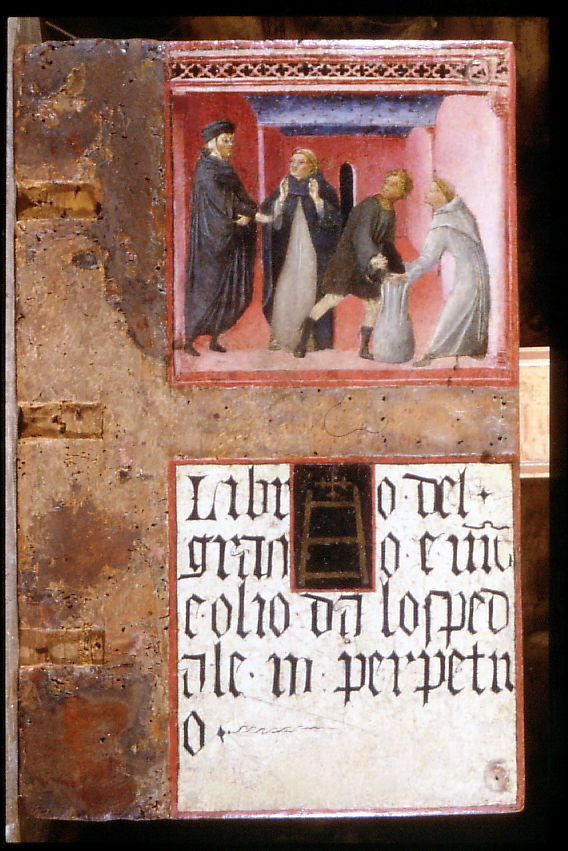 Libro del·
grano · e uin̄
e olio da losped
ale · in · perpetu
o ·